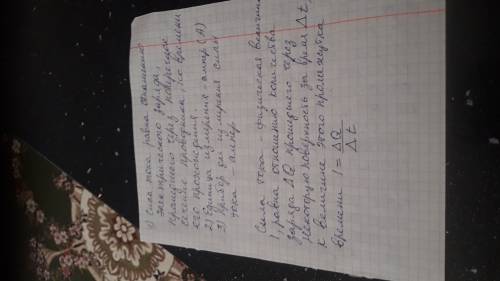 1) Сила тока равна отношению
электрического заряда,
прошедшего через поперечное
сечение проводника, ко времени
его прохождения.
2) Единица измерения - ампер (А)
3) Прибор для измерения силы
тока - ампер
Сила тока - физическая величина
I, равна отношению количества
заряда ΔQ прошедшего через
некоторую поверхность за время Δt,
к величине этого промежутка
времени I = ΔQ
Δt